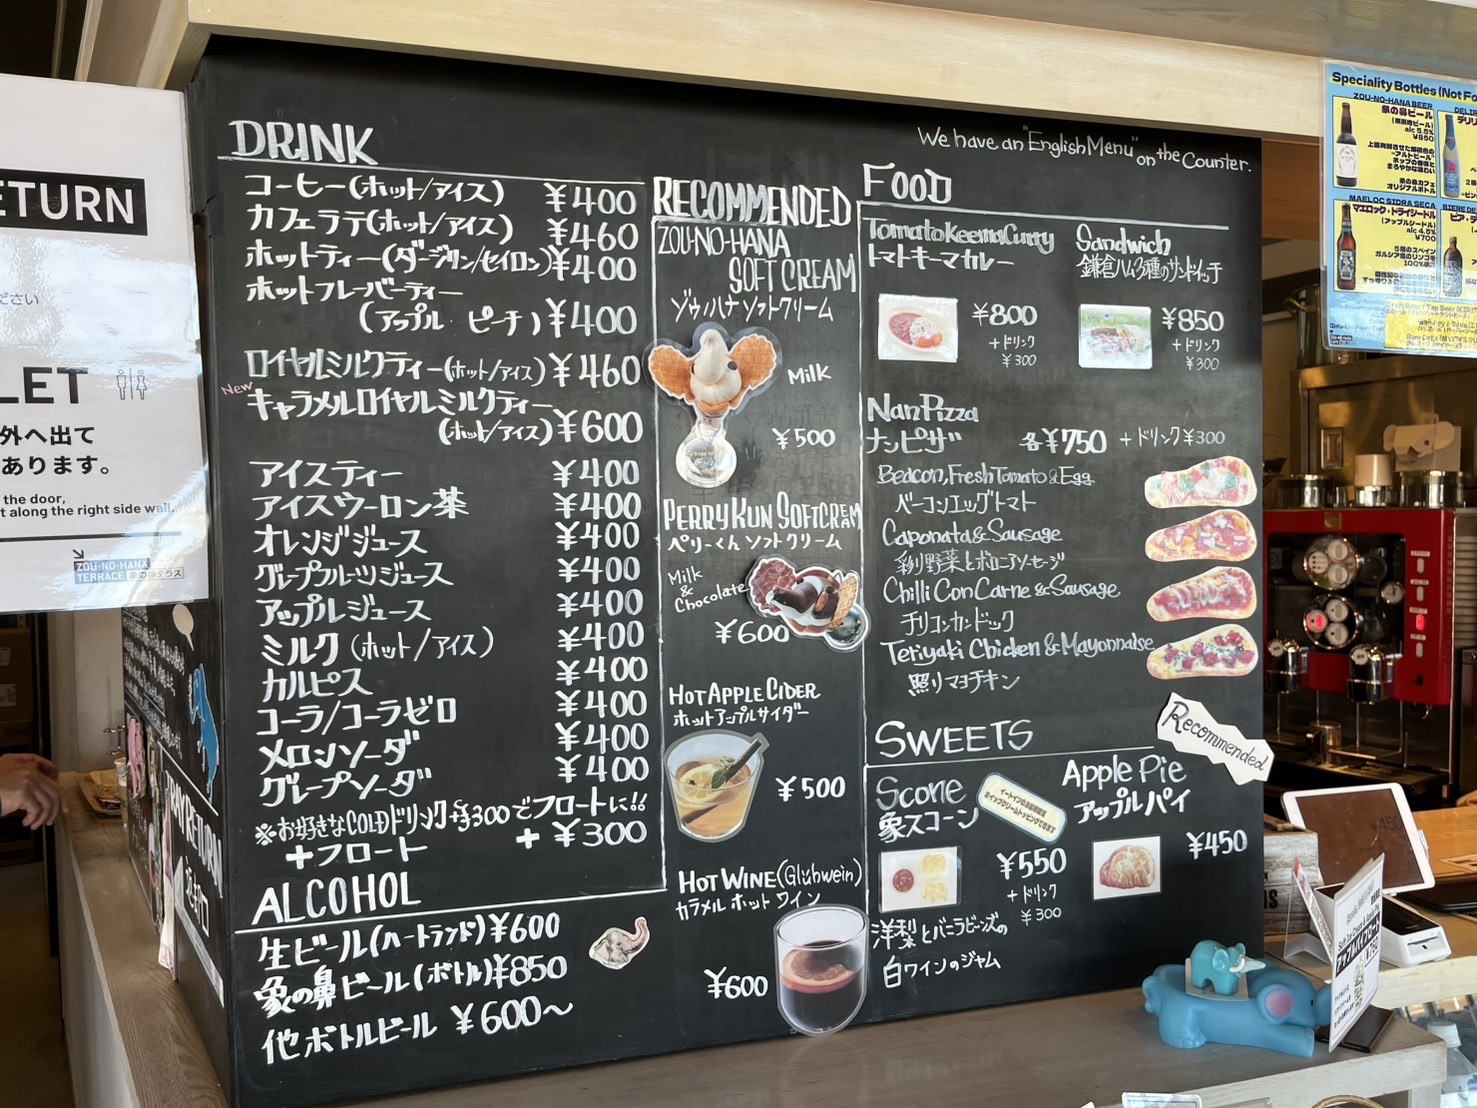 ETURN
ださい
LET
外へ出て
あります。
the door,
t along the right side wall.
ZOU-NO-HANA
TERRACE 象の鼻テラス
DRINK
コーヒー(ホット/アイス) ¥400
カフェラテ(ホット/アイス) ¥460
ホットティー(ダージリン/セイロン) ¥400
ホットフレーバーティー
(アップル・ピーチ) ¥400
ロイヤルミルクティー(ホット/アイス) ¥460
New
キャラメルロイヤルミルクティー
(ホット/アイス) ¥600
アイスティー ¥400
アイスウーロン茶 ¥400
オレンジジュース ¥400
グレープフルーツジュース ¥400
アップルジュース ¥400
ミルク(ホット/アイス) ¥400
カルピス ¥400
コーラ/コーラゼロ ¥400
メロンソーダ ¥400
グレープソーダ ¥400
※お好きなCOLDドリンク+¥300でフロートに!!
+フロート +¥300
ALCOHOL
生ビール(ハートランド) ¥600
象の鼻ビール(ボトル) ¥850
他ボトルビール ¥600〜
RECOMMENDED
ZOU-NO-HANA
SOFT CREAM
ゾウノハナソフトクリーム
Milk
¥500
PERRY KUN SOFTCREAM
ペリーくんソフトクリーム
Milk
&
Chocolate
¥600
HOT APPLE CIDER
ホットアップルサイダー
¥500
HOT WINE(Glühwein)
カラメルホットワイン
¥600
We have an "English Menu" on the Counter.
FOOD
Tomato Keema Curry
トマトキーマカレー
¥800
+ドリンク
¥300
Sandwich
鎌倉ハム3種のサンドイッチ
¥850
+ドリンク
¥300
Nan Pizza
ナンピザ 各¥750 +ドリンク¥300
Beacon, Fresh Tomato & Egg
ベーコンエッグトマト
Caponata & Sausage
彩り野菜とボロニアソーセージ
Chilli Con Carne & Sausage
チリコンカンドック
Teriyaki Chicken & Mayonnaise
照りマヨチキン
SWEETS
Recommended
Scone
象スコーン
イートインのお客様限定
ホイップクリームトッピングできます
¥550
+ドリンク
¥300
洋梨とバニラビーンズの
白ワインのジャム
Apple Pie
アップルパイ
¥450
Speciality Bottles (Not Fo
ZOU-NO-HANA BEER
象の鼻ビール
alc 5.5%
¥850
象の鼻カフェ
オリジナルボトル
MAELOC SIDRA SECA
マエロック・ドライシードル
(アップルシードル)
alc 4.5%
¥700
RAY RETURN
返却口